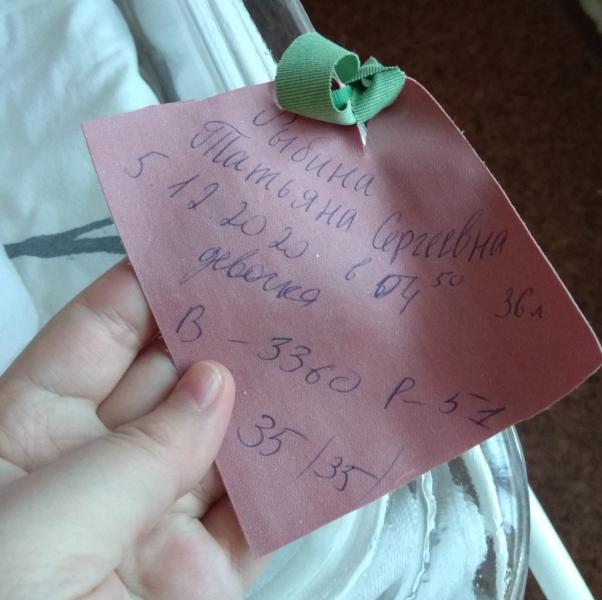 Рыбина
Татьяна Сергеевна 36л
5.12.2020 в 04⁵⁰
девочка
В - 3360 Р - 51
35 /35/